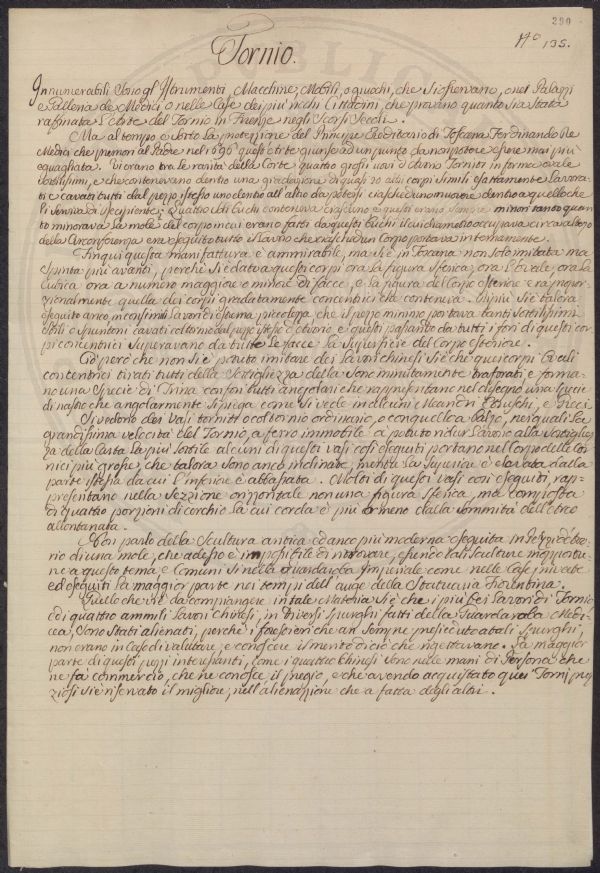 290
Nº 135.
Tornio.
Innumerabili sono gl' Istrumenti, Macchine, Mobili, o giuochi, che si osservano, o nei Palazzi
e Galleria de Medici o nelle Case dei più ricchi Cittadini, che provano quanto sia stata
raffinata l'Arte del Tornio in Firenze negli scorsi secoli.
Ma al tempo e sotto la protezzione del Principe Ereditario di Toscana Ferdinando de
Medici che premorì al Padre nel quest' Arte giunse ad un punto da non potere essere mai più
eguagliata. Vi erano tra le rarità della Corte quattro grossi uovi d'Avorio Torniti in forma ovale
sottilissimi, e che contenevano dentro una gradazione di quasi 20 altri corpi simili esattamente lavora-
ti e cavati tutti dal pezzo istesso uno dentro all'altro da potersi ciascheduno muovere dentro a quello che
li serviva di recipiente; Quattro buchi conteneva ciascuno e questi erano sempre minori tanto quan
to minorava la mole del corpo in cui erano fatti da questi buchi il cui diametro occupava circa
della Circonferenza era eseguito tutto il lavoro che ciaschedun Corpo portava internamente.
Fin qui questa manifattura è ammirabile, ma si è in Toscana non solo imitata ma
spinta più avanti, perchè si è data a questi corpi ora la figura sferica, ora l'Ovale, ora la
cubica ora a numero maggiore o minore di facce, e la figura del Corpo esteriore era propor-
zionalmente quella dei corpi gradatamente concentrici che conteneva. Di più si è talora
eseguito anco in consimili lavori d'estrema piccolezza che il pezzo minimo portava tanti sottilissimi
obili o spuntoni cavati col tornio dal pezzo istesso d'Avorio, e questi passando da tutti i fori di questi cor
pi concentrici superavano da tutte le facce la superficie del Corpo esteriore.
Ciò però che non si è potuto imitare dei lavori chinesi si è che quei corpi Ovali
concentrici tirati tutti della sottigliezza della sono minutamente traforati, e forma-
no una specie di Trina con fori tutti angolari che rappresentano nel disegno una specie
di nastro che angolarmente si piega come si vede in alcuni Meandri Etruschi, e Greci
Si vedono dei Vasi torniti o col tornio ordinario, o con quello a balzo, nei quali la
grandissima velocità del Tornio, a ferro immobile à potuto ridur l'avorio alla sottigliez
za della Carta la più sottile alcuni di questi vasi così eseguiti portano nel Corpo delle cor
nici più grosse, che talora sono anco inclinate, mentre la superiore è elevata dalla
parte istessa da cui l'inferiore è abbassata. Molti di questi vasi così eseguiti, rap-
presentano nella Sezzione orizzontale non una figura sferica, ma composta
di quattro porzioni di cerchio la cui corda è più o meno dalla sommità dell'arco
allontanata.
Non parlo della Scultura antica ed anco più moderna eseguita in pezzi d'Avo-
rio di una mole, che adesso è impossibile di ritrovare, essendo tali sculture inopportu-
ne a questo tema e Comuni sì nella Guardaroba Imperiale come nelle Case private
ed eseguiti la maggior parte nei tempi dell' auge della Statuaria Fiorentina.
Quello che vi è da compiangere in tale materia si è che i più bei lavori di Tornio
ed i quattro ammirabili lavori chinesi, in diversi spurghi fatti della Guardaroba Medi-
cea, sono stati alienati, perchè i Professori che àn sempre preseduto a tali spurghi,
non erano in Caso di valutare, e conoscere il merito di ciò che rigettavano. La maggior
parte di questi pezzi interessanti, come i quattro Chinesi sono nelle mani di Persona che
ne fà commercio, che ne conosce il pregio, e che avendo acquistato quei Torni, pre
ziosi si è riservato il migliore, nell'alienazione che à fatta degli altri.